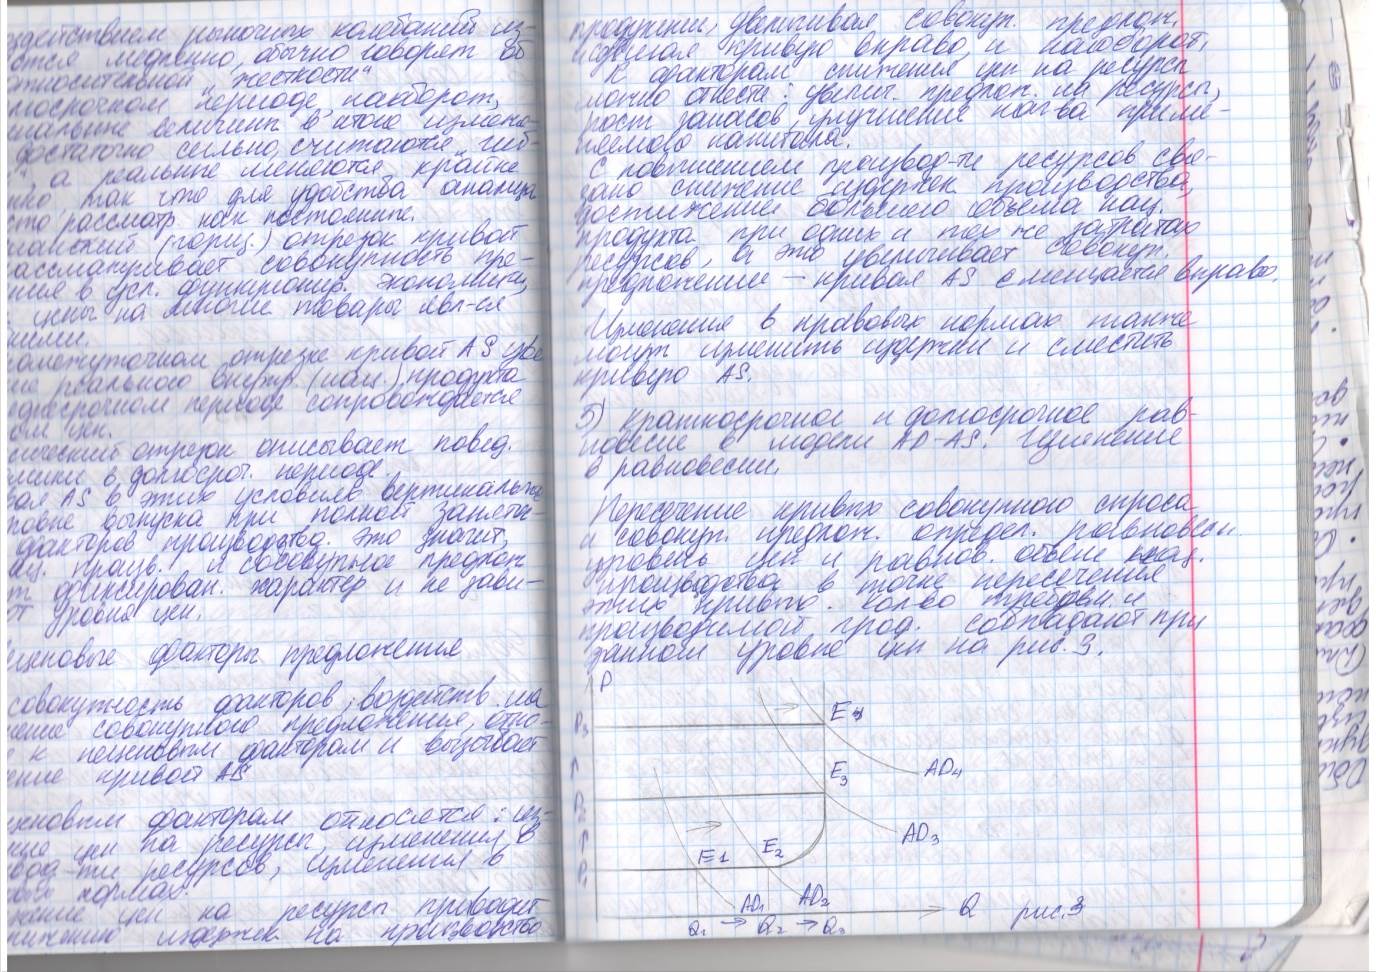 здействием рыночных колебаний из-
ются медленно, обычно говорят об
относительной "жесткости"
лгосрочном периоде, наоборот,
инальные величины в итоге изменя-
достаточно сильно, считаются "гиб-
" а реальные меняются крайне
нно, так что для удобства анализа
сто рассмотр. как постоянные.
ианский (гориз.) отрезок кривой
рассматривает совокупность пре-
ния в усл. функциониров. экономики
цены на многие товары явл-ся
кими.
ромежуточном отрезке кривой AS уве
ние реального внутр. (нац.) продукта
реднесрочном периоде сопровождается
ом цен.
сический отрезок описывает повед.
омики в долгоср. периоде.
вая AS в этих условиях вертикальна
ровне выпуска при полной занятос-
факторов производства. Это значит,
ац. произв. и совокупное предлож
т фиксирован. характер и не зави-
от уровня цен.
еценовые факторы предложения
совокупность факторов, воздейств. на
нение совокупного предложения, отно-
к неценовым факторам и вызывает
ение кривой AS
ценовым факторам относятся: из-
ние цен на ресурсы, изменения в
вод-ти ресурсов, изменения в
вых нормах.
жение цен на ресурсы приводит
нижению издержек на производство
продукции, увеличивая совокуп. предлож.
сдвигая кривую вправо, и наоборот.
К факторам снижения цен на ресурсы
можно отнести: увелич. предлож. на ресурсы,
рост запасов, улучшение кач-ва приме-
няемого капитала.
С повышением производ-ти ресурсов свя-
зано снижение издержек производства,
достижение большего объема нац.
продукта при одних и тех же затратах
ресурсов, а это увеличивает совокуп.
предложение – кривая AS смещается вправо.
Изменения в правовых нормах также
могут изменить издержки и сместить
кривую AS.
5) Краткосрочное и долгосрочное рав-
новесие в модели AD-AS. Изменение
в равновесии.
Пересечение кривых совокупного спроса
и совокуп. предлож. определ. равновесн.
уровень цен и равнов. объем нац.
производства в точке пересечения
этих кривых. Кол-во требуем. и
производимой прод. совпадают при
данном уровне цен на рис. 3.
P
P3
E4
AD4
E3
P2
AD3
E1 E2
P1
AD1 AD2
Q рис.3
Q1 → Q2 → Q3